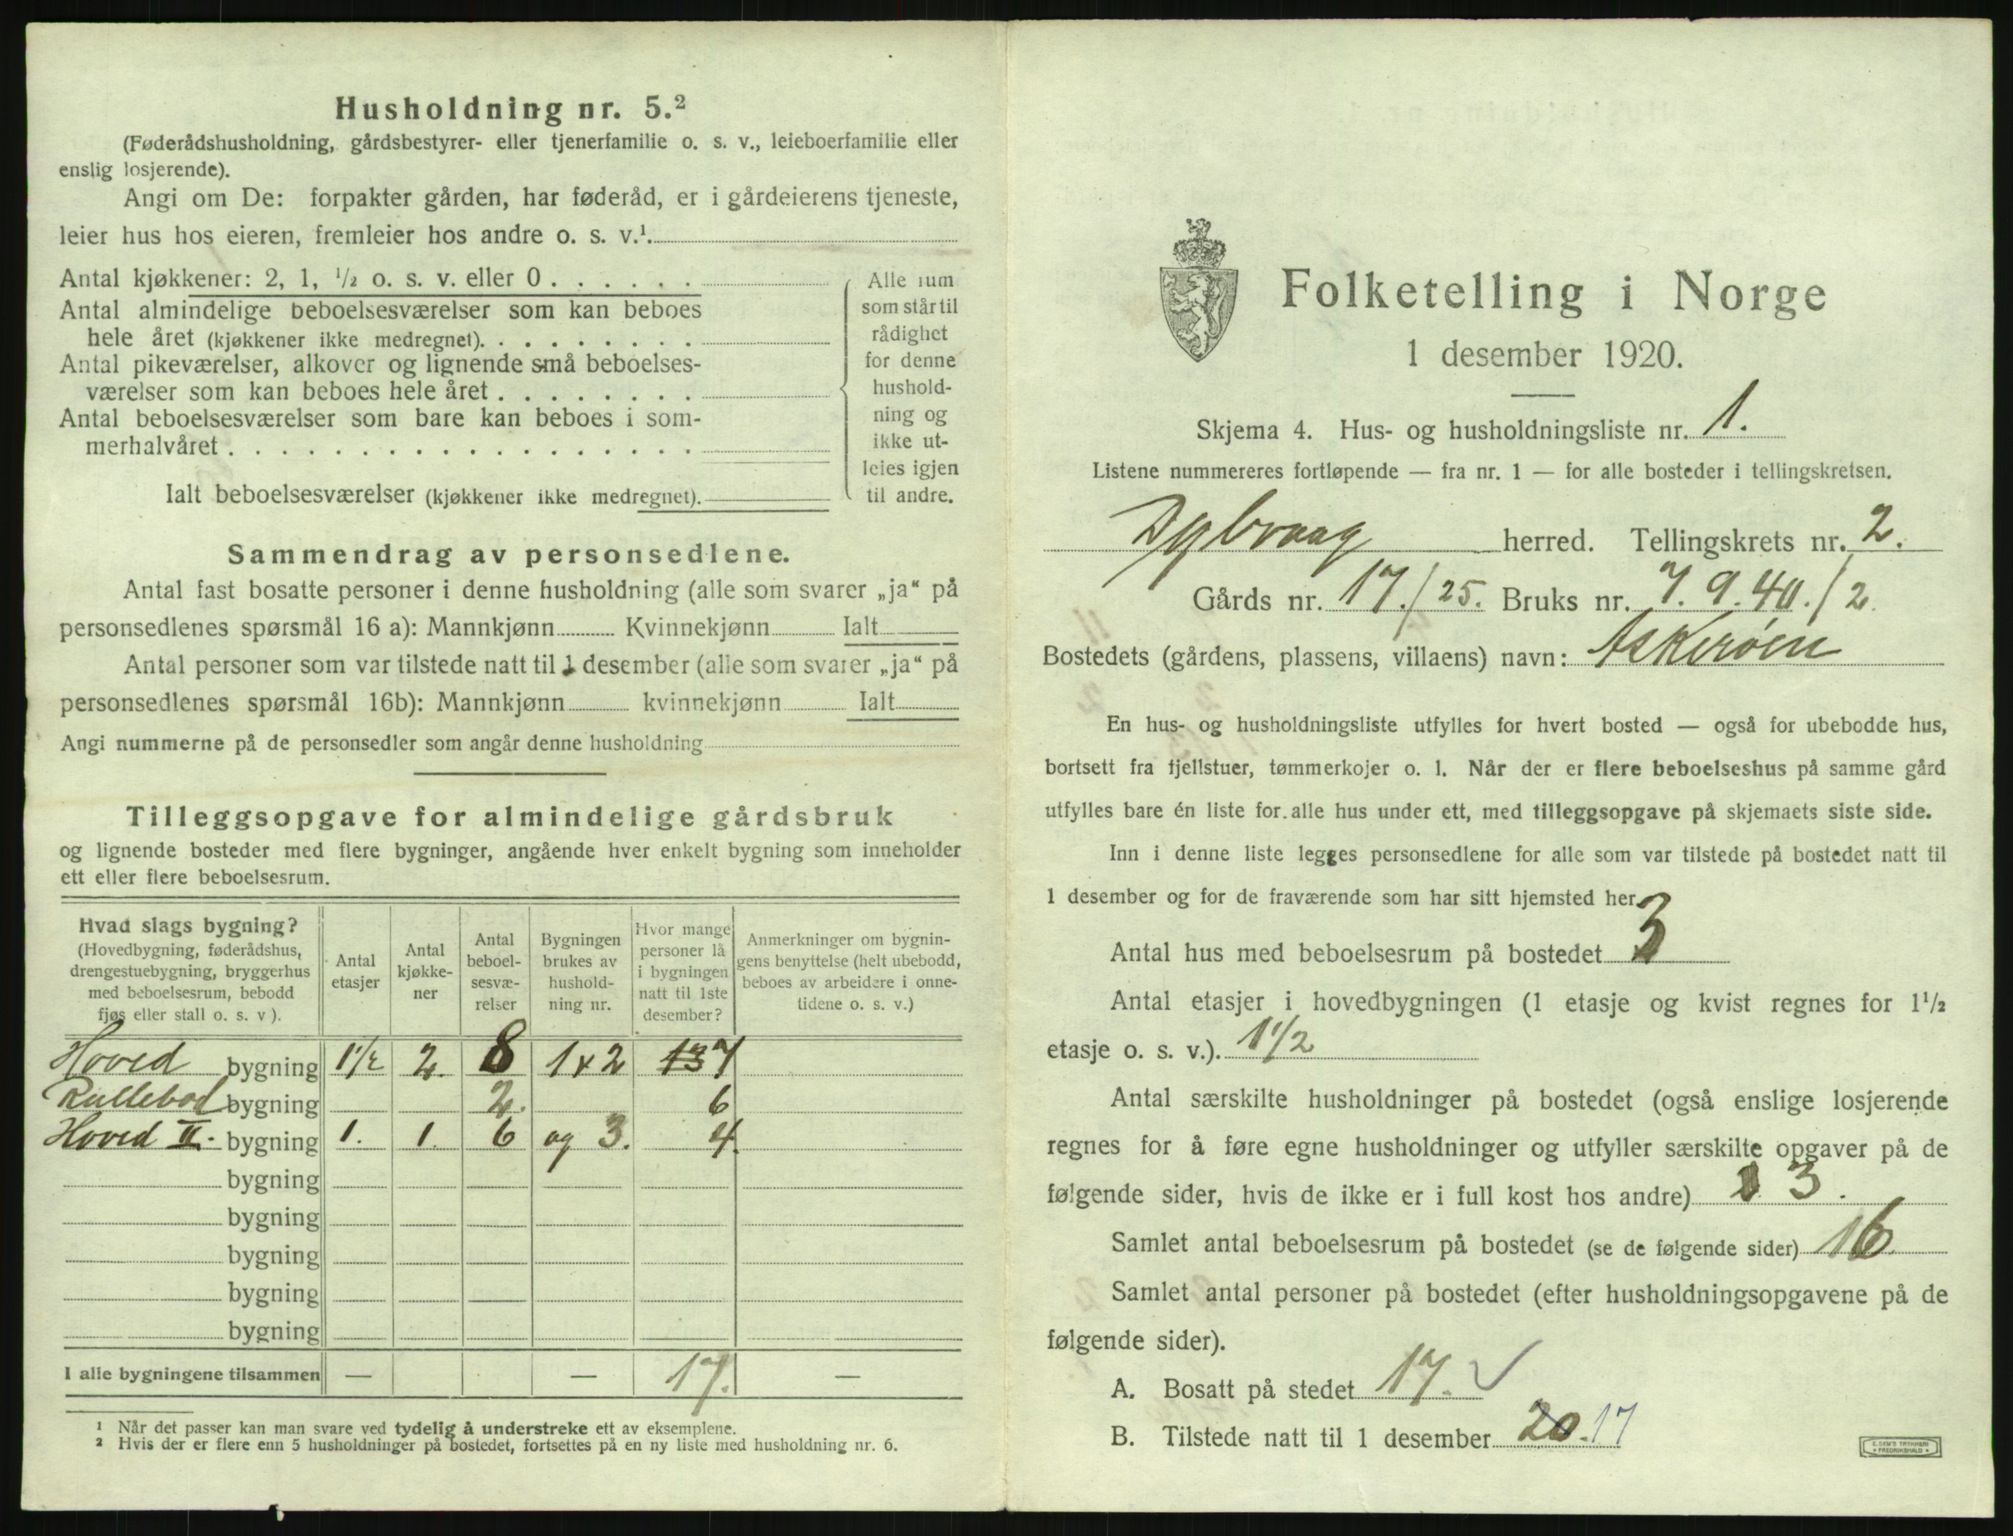 Husholdning nr. 5.²
(Føderådshusholdning, gårdsbestyrer- eller tjenerfamilie o. s. v., leieboerfamilie eller
enslig losjerende).
Angi om De: forpakter gården, har føderåd, er i gårdeierens tjeneste,
leier hus hos eieren, fremleier hos andre o. s. v.¹
Antal kjøkkener: 2, 1, ½ o. s. v. eller 0 . . . . . .
Antal almindelige beboelsesværelser som kan beboes
hele året (kjøkkener ikke medregnet). . . . . . . . .
Antal pikeværelser, alkover og lignende små beboelses-
værelser som kan beboes hele året . . . . . . . .
Antal beboelsesværelser som bare kan beboes i som-
merhalvåret . . . . . . . . . . . . . . . . . .
Ialt beboelsesværelser (kjøkkener ikke medregnet).
Alle rum
som står til
rådighet
for denne
hushold-
ning og
ikke ut-
leies igjen
til andre.
Sammendrag av personsedlene.
Antal fast bosatte personer i denne husholdning (alle som svarer „ja“ på
personsedlenes spørsmål 16 a): Mannkjønn Kvinnekjønn Ialt
Antal personer som var tilstede natt til 1 desember (alle som svarer „ja“ på
personsedlenes spørsmål 16b): Mannkjønn kvinnekjønn Ialt
Angi nummerne på de personsedler som angår denne husholdning
Tilleggsopgave for almindelige gårdsbruk
og lignende bosteder med flere bygninger, angående hver enkelt bygning som inneholder
ett eller flere beboelsesrum.
Hvad slags bygning?
(Hovedbygning, føderådshus,
drengestuebygning, bryggerhus
med beboelsesrum, bebodd
fjøs eller stall o. s. v ).
Antal
etasjer
Antal
kjøkke-
ner
Antal
beboel-
sesvæ-
relser
Bygningen
brukes av
hushold-
ning nr.
Hvor mange
personer lå
i bygningen
natt til 1ste
desember?
Anmerkninger om bygnin-
gens benyttelse (helt ubebodd,
beboes av arbeidere i onne-
tidene o. s. v.)
Hoved bygning 1½ 2. 8 1 x 2 13 7
Rullebod bygning 2. 6
Hoved II. bygning 1. 1. 6 og 3. 4.
bygning
bygning
bygning
bygning
bygning
I alle bygningene tilsammen — — 17. —
¹ Når det passer kan man svare ved tydelig å understreke ett av eksemplene.
² Hvis der er flere enn 5 husholdninger på bostedet, fortsettes på en ny liste med husholdning nr. 6.
Folketelling i Norge
1 desember 1920.
Skjema 4. Hus- og husholdningsliste nr. 1.
Listene nummereres fortløpende — fra nr. 1 — for alle bosteder i tellingskretsen.
Dybvaag herred. Tellingskrets nr. 2.
Gårds nr. 17./25. Bruks nr. 7. 9. 40./2
Bostedets (gårdens, plassens, villaens) navn: Askerøen
En hus- og husholdningsliste utfylles for hvert bosted — også for ubebodde hus,
bortsett fra fjellstuer, tømmerkojer o. l. Når der er flere beboelseshus på samme gård
utfylles bare én liste for alle hus under ett, med tilleggsopgave på skjemaets siste side.
Inn i denne liste legges personsedlene for alle som var tilstede på bostedet natt til
1 desember og for de fraværende som har sitt hjemsted her.
Antal hus med beboelsesrum på bostedet 3
Antal etasjer i hovedbygningen (1 etasje og kvist regnes for 1½
etasje o. s. v.). 1½
Antal særskilte husholdninger på bostedet (også enslige losjerende
regnes for å føre egne husholdninger og utfyller særskilte opgaver på de
følgende sider, hvis de ikke er i full kost hos andre) 3.
Samlet antal beboelsesrum på bostedet (se de følgende sider) 16
Samlet antal personer på bostedet (efter husholdningsopgavene på de
følgende sider).
A. Bosatt på stedet 17. ✓
B. Tilstede natt til 1 desember 20. 17